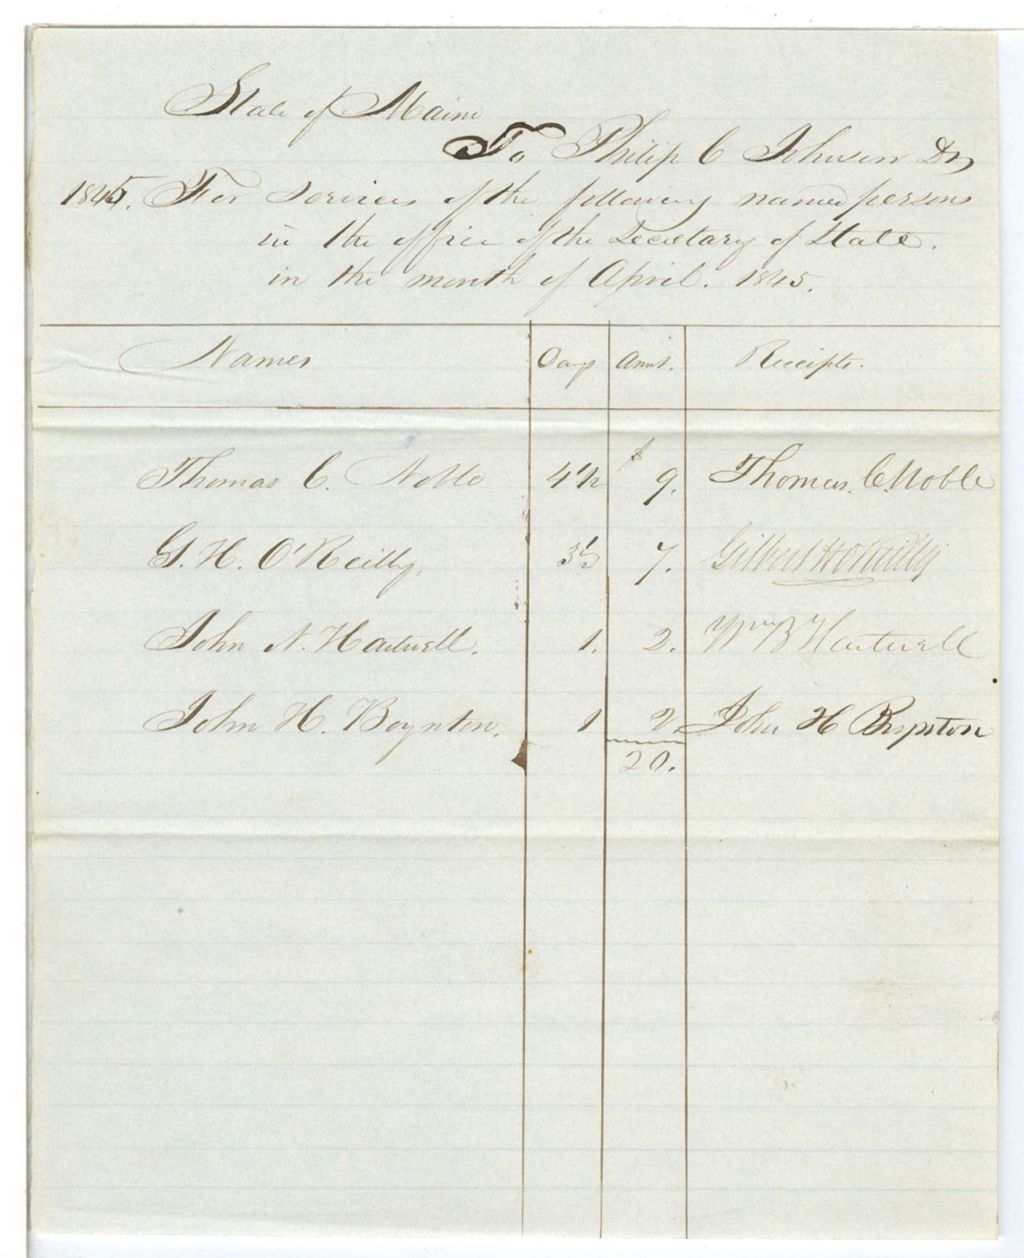 State of Maine
To Philip C Johnson Dr,
1845. For services of the following named persons
in the office of the Secretary of State.
in the month of April. 1845.
Names Days Amnt. Receipts.
Thomas C. Noble 4½ $ 9. Thomas. C. Noble
G. H. O'Reilly. 3½ 7. Gilbert H O'Reilly
John N. Hartwell. 1. 2. Hartwell
John H. Boynton. 1 2. John H Boynton
20.